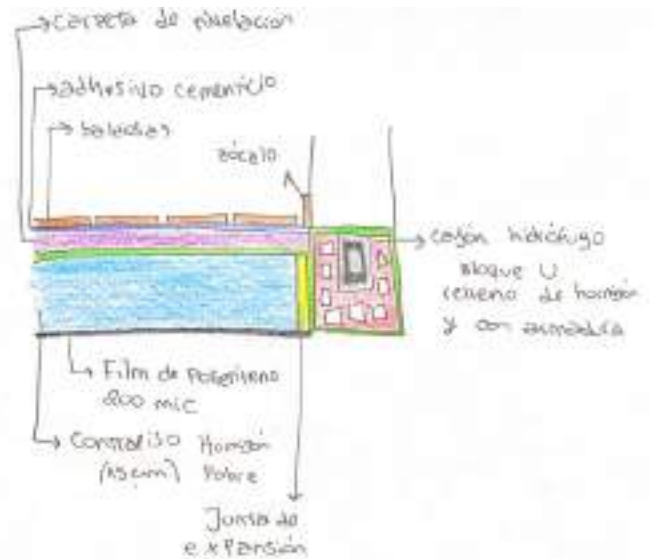 carpeta de nivelacion
adhesivo cementicio
baldosas
zócalo
cajón hidrófugo
Bloque U
relleno de hormigón
y con armadura
Film de Polietileno
200 mic
Contrapiso Hormigón
Pobre
Junta de
expansión